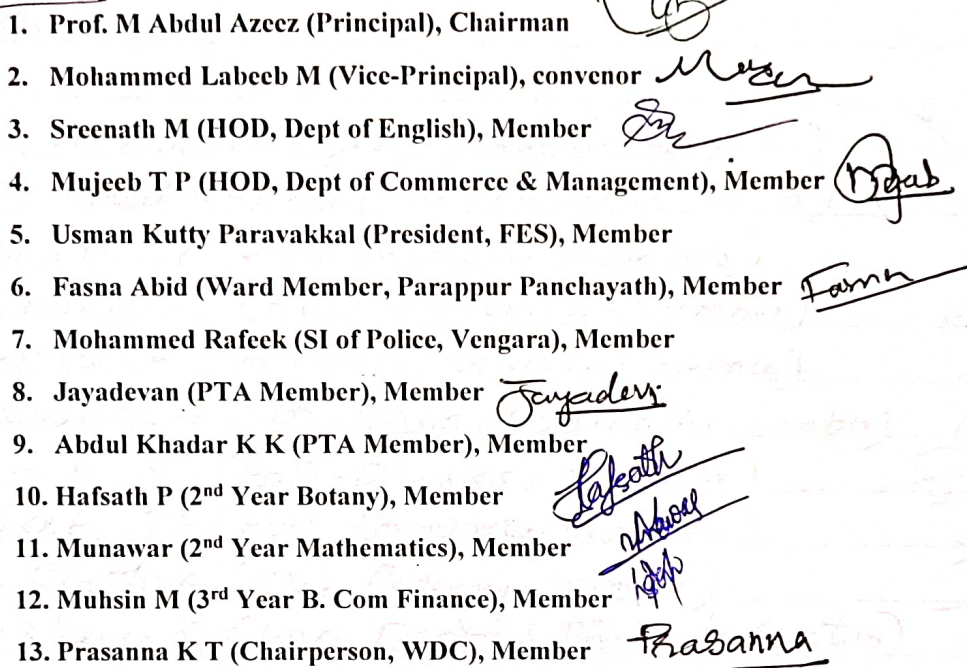 1. Prof. M Abdul Azeez (Principal), Chairman
2. Mohammed Labeeb M (Vice-Principal), convenor
3. Sreenath M (HOD, Dept of English), Member
4. Mujeeb T P (HOD, Dept of Commerce & Management), Member
5. Usman Kutty Paravakkal (President, FES), Member
6. Fasna Abid (Ward Member, Parappur Panchayath), Member Fasna
7. Mohammed Rafeek (SI of Police, Vengara), Member
8. Jayadevan (PTA Member), Member
9. Abdul Khadar K K (PTA Member), Member
10. Hafsath P (2nd Year Botany), Member Hafsath
11. Munawar (2nd Year Mathematics), Member
12. Muhsin M (3rd Year B. Com Finance), Member
13. Prasanna K T (Chairperson, WDC), Member Prasanna